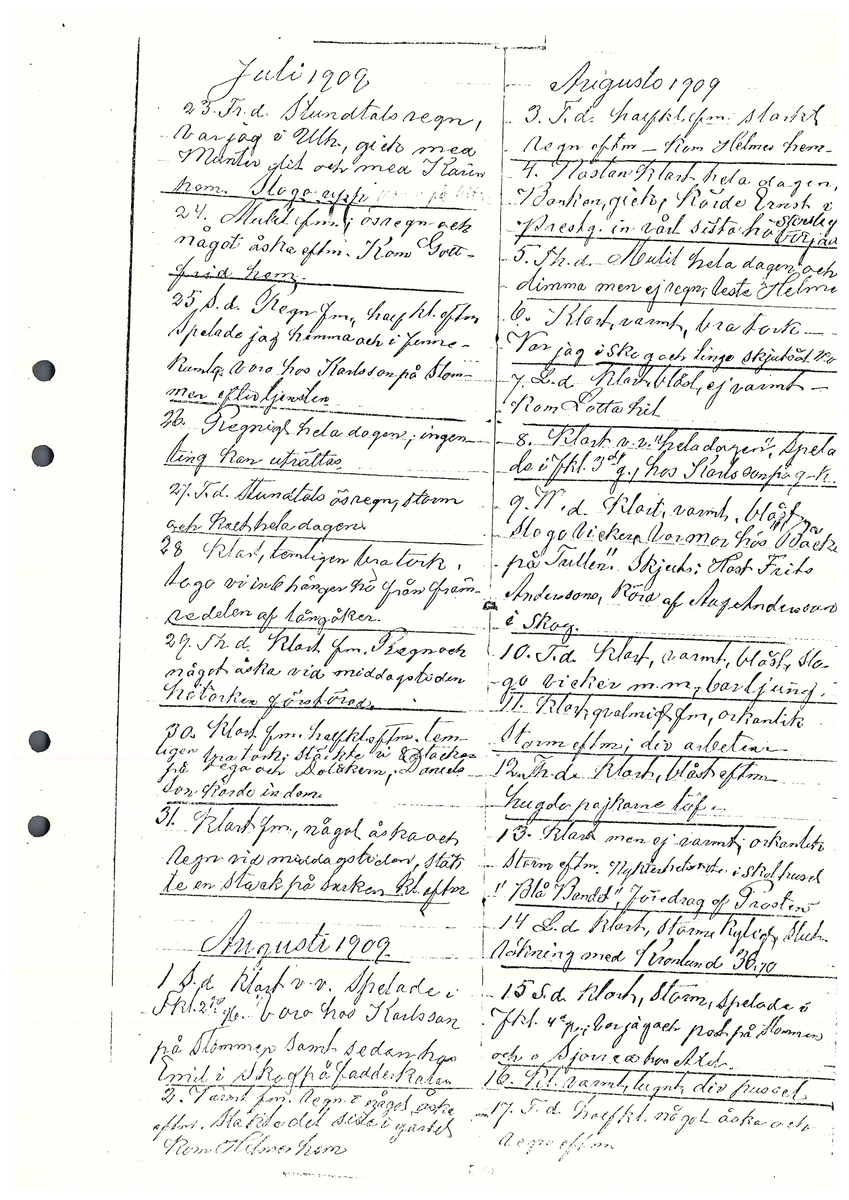 Juli 1909
23. Fr.d. Stundtals regn,
var jag i Ulh., gick med
Munter dit och med Karin
hem. Slogo upp
24. Mulit fm.; ösregn och
något åska eftm. Kom Gott-
frid hem.
25 S.d. Regn fm., halfkl. eftm
Spelade jag hemma och i Jenne-
kumla, voro hos Karlsson på Stom-
men eftertjensten
26. Regnigt hela dagen, ingen
ting kan uträttas
27. T.d. Stundtals ösregn, storm
och kallt hela dagen.
28 Klart, temligen bra tork.
togo vi in 6 hänger hö från främ-
redelen af långåker.
29. Th.d. Klart fm. Regn och
något åska vid middagstiden
hötorken förstördes
30. Klart fm. halfkl. eftm. tem-
ligen bra tork; stackte vi 2 stackar
på och Daniels-
son körde in dem
31. Klart fm., något åska och
regn vid middagstiden, stack
te en stack på kl. eftm
Augusti 1909.
1 S.d. Klart v.v. Spelade i
Fkl. 2 voro hos Karlsson
på Stommen samt sedan hos
Emil i Skog på
2. Varmt fm. regn i något åska
eftm. Stackte det sista i gärdet
Kom Helmer hem
Augusto 1909
3. T.d. halfkl. fm. starkt
regn eftm – Kom Helmer hem –
4. Nästan klart hela dagen,
körde Ernst i
Prestg. in vårt sista hö
började
5. Th.d. Mulit hela dagen och
dimma men ej regn, leste Helme
6. Klart, varmt, bra tork –
Var jag i skog och Linge
7. L.d. Klart, blåst, ej varmt –
Kom Lotta hit
8. Klart v.v. "hela dagen", Spela
de i Fkl. 3 g., hos Karlsson på
9. M.d. Klart, varmt, blåst,
Slogo vicker, Var mor hos "Bäcka
på Tullen". Skjuts: Häst Frits
Anderssons, Körd af Aug Andersson
i Skog.
10. T.d. Klart, varmt, blåst, Slo-
go vicker m.m., bar ljung.
11. Klart, qvalmigt fm, orkanlik
Storm eftm; div arbeten
12. Th.d. Klart, blåst eftm
huggde pojkarne löf.
13. Klart men ej varmt; orkanlik
storm eftm. Nykterhetsmöte i skolhuset
"Blå Bandet", föredrag af Prosten
14 L.d. Klart, storm, kyligt, slut-
räkning med Kronlund 36.70
15 S.d. Klart, storm, spelade i
Fkl. 4 var jag och på Stommen
och hos Axel.
16. Kl. varmt, lugnt, div pussel
17. T.d. halfkl. något åska och
regn eftm